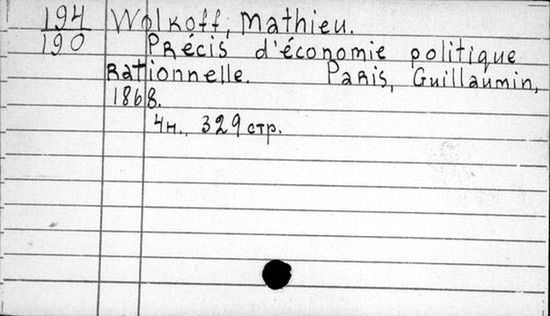 194 Wolkoff, Mathieu.
190 Précis d'économie politique
rationnelle. Paris, Guillaumin,
1868.
4н., 329 стр.